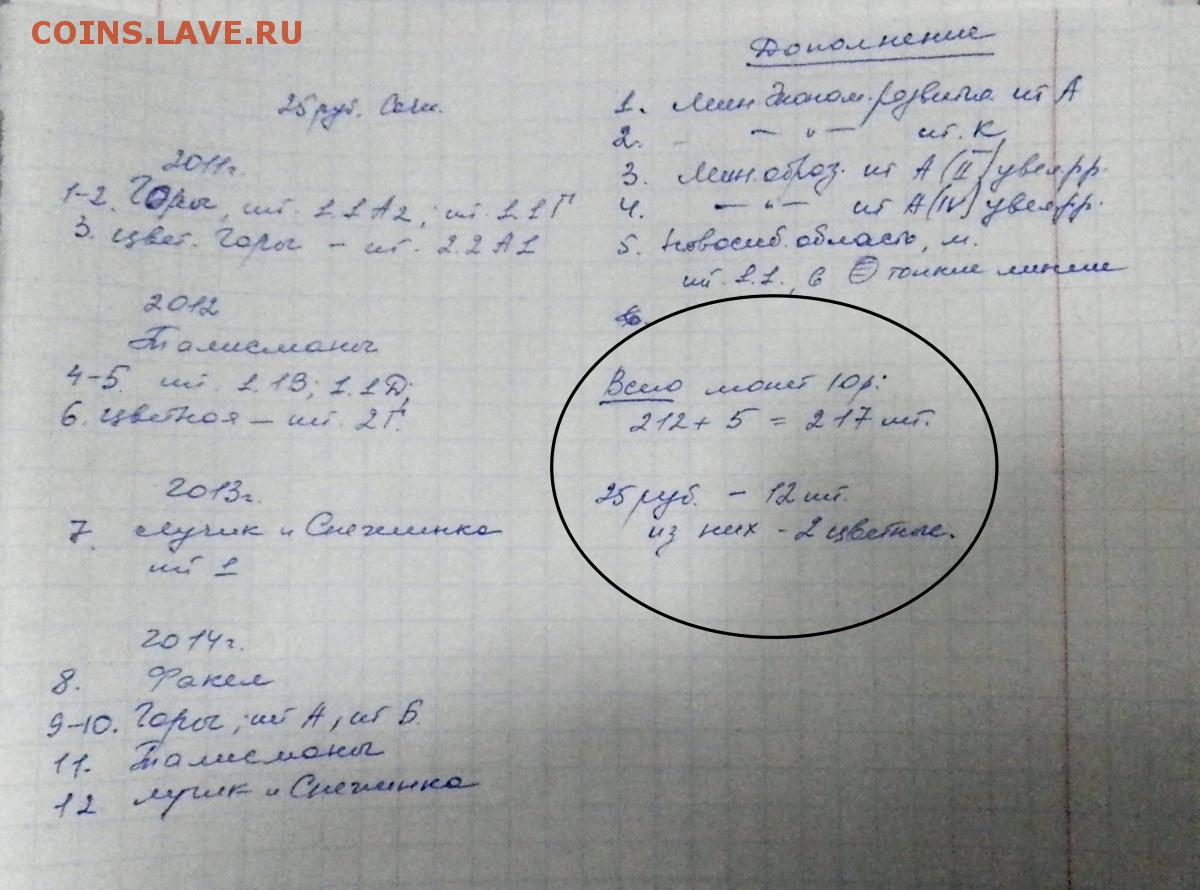 COINS.LAVE.RU
25 руб. Сочи.
2011г.
1-2. Горы, шт. 1.1А2; шт. 1.1Г
3. цвет. Горы – шт. 2.2А1
2012
Талисманы
4-5. шт. 1.1В; 1.1D;
6. цветная – шт. 2Г.
2013г.
7. Лучик и Снежинка
шт 1
2014г.
8. Факел
9-10. Горы; шт А, шт Б.
11. Талисманы
12 Лучик и Снежинка
Дополнение
1. Мин Эконом. развития шт А
2. – " – шт. К
3. Мин. образ. шт А (II) увел рр.
4. – " – шт А (IV) увел рр.
5. Новосиб. область, м.
шт. 1.1., в тонкие линии
6.
Всего монет 10р:
212 + 5 = 217 шт.
25 руб. – 12 шт.
из них - 2 цветные.